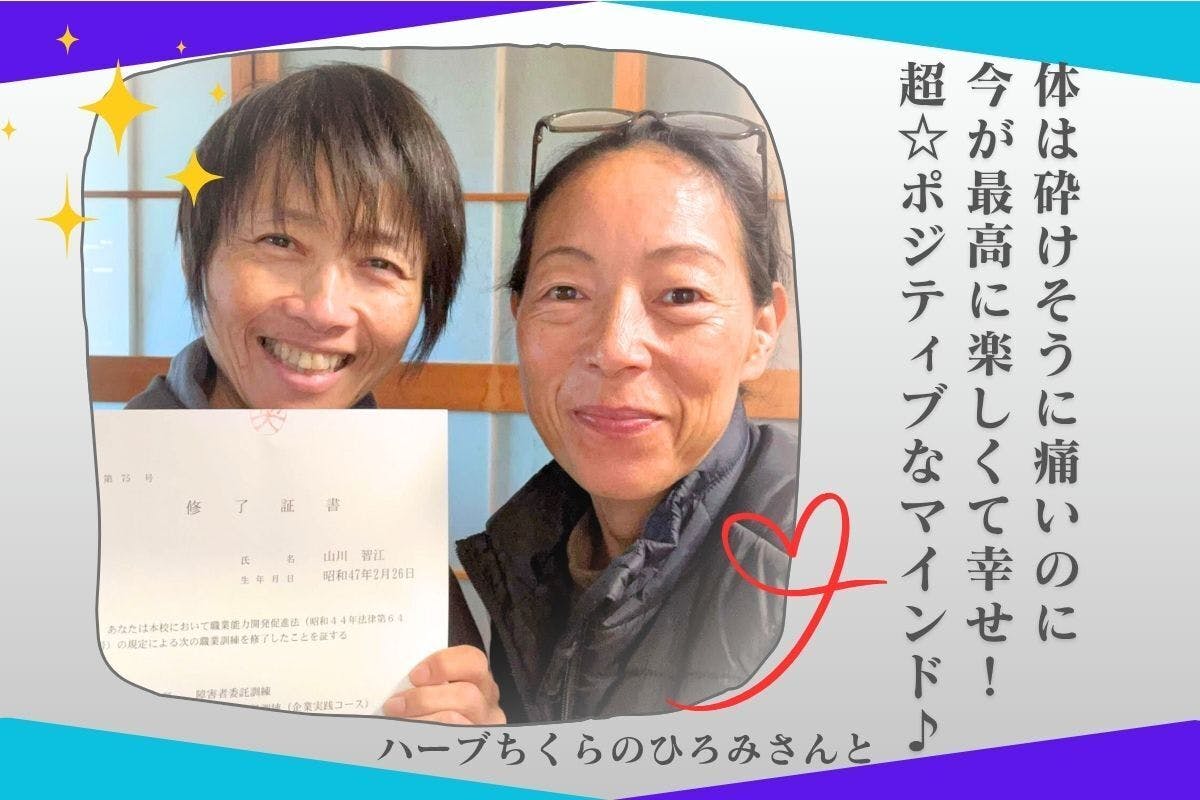 体は砕けそうに痛いのに
今が最高に楽しくて幸せ！
超☆ポジティブなマインド♪
第 75 号
修了証書
氏名 山川 智江
生年月日 昭和47年2月26日
あなたは本校において職業能力開発促進法（昭和44年法律第64
号）の規定による次の職業訓練を修了したことを証する
障害者委託訓練
（企業実践コース）
ハーブちくらのひろみさんと